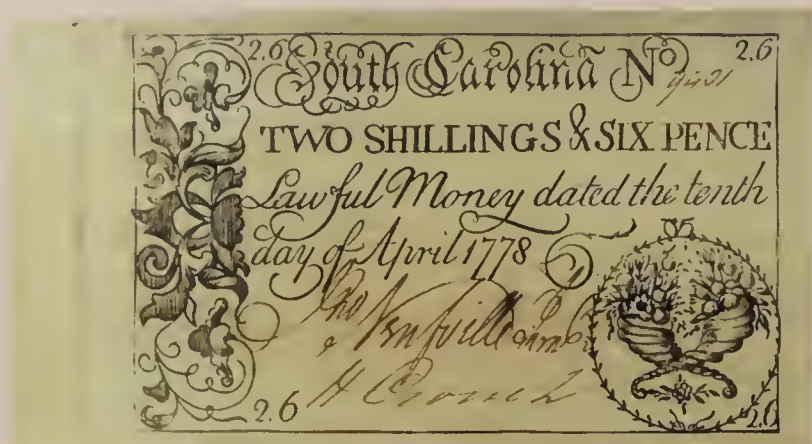 2.6 South Carolina No 2.6
TWO SHILLINGS & SIX PENCE
Lawful Money dated the tenth
day of April 1778
H Crouch
2.6 2.6